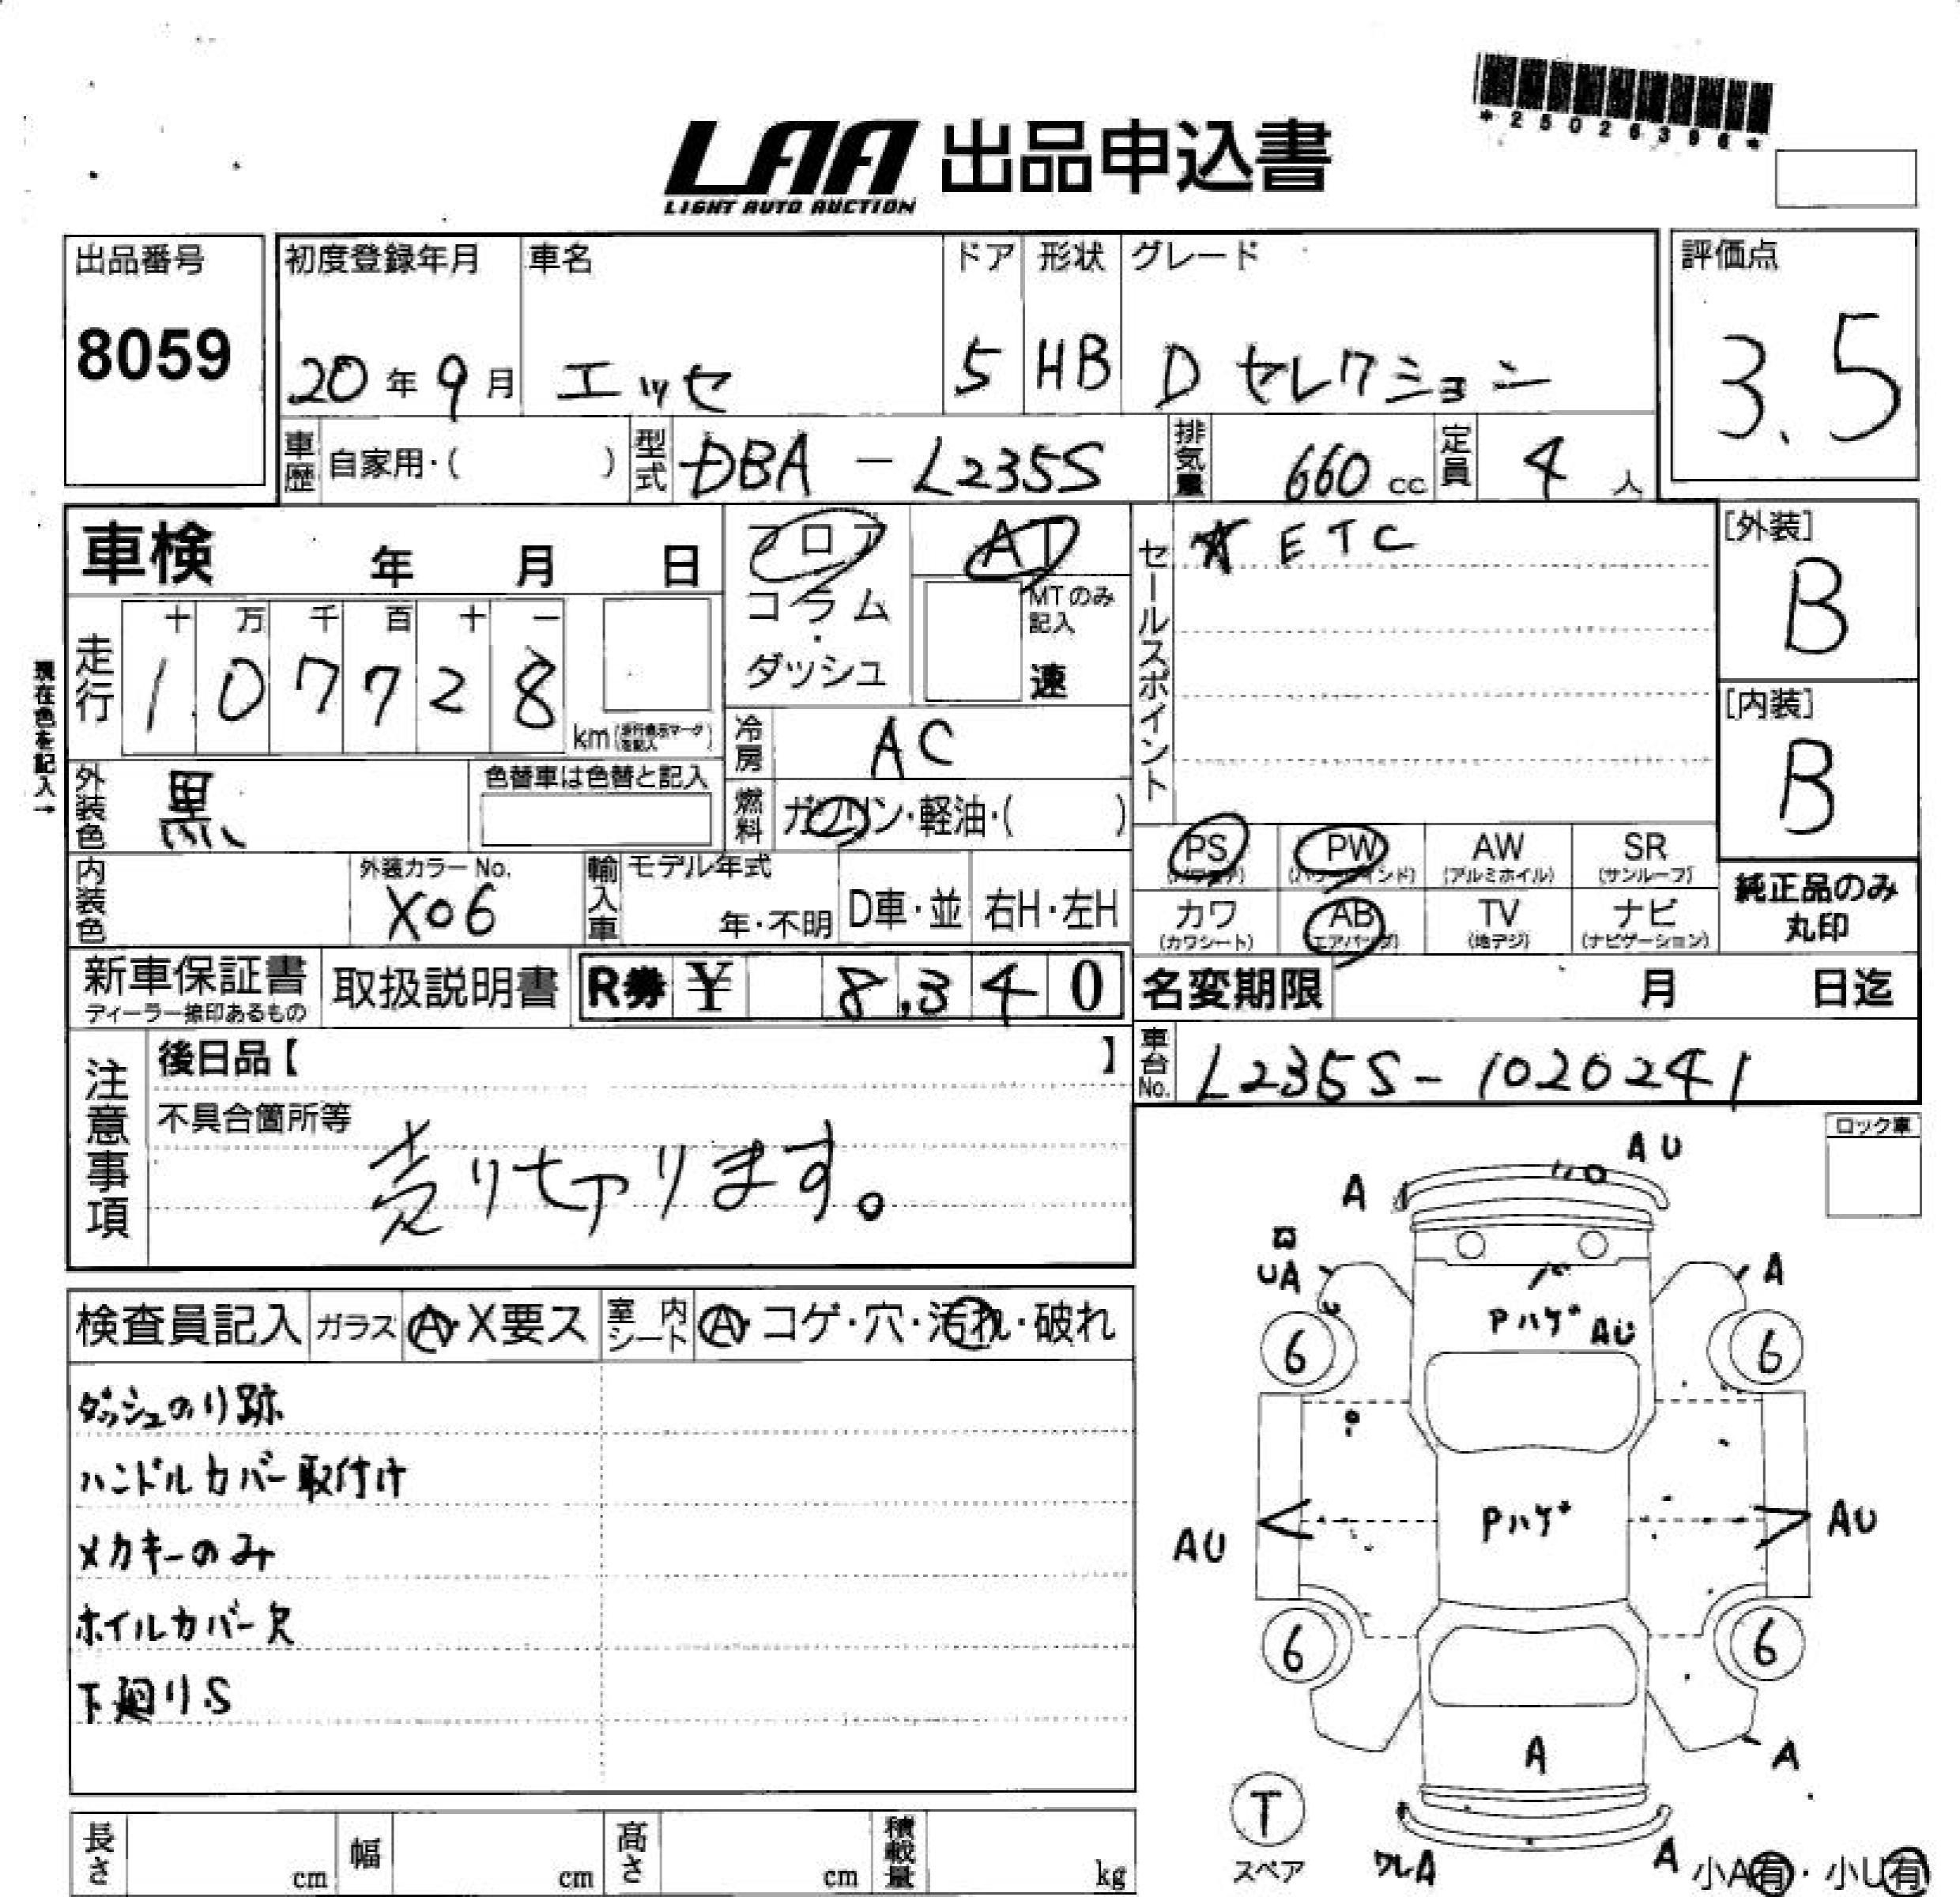 *25026396*
LAA 出品申込書
LIGHT AUTO AUCTION
出品番号
8059
初度登録年月
20年9月
車名
エッセ
ドア
5
形状
HB
グレード
D セレクション
評価点
3.5
車歴 自家用・( )
型式 DBA-L235S
排気量 660cc
定員 4人
車検 年 月 日
フロア
コラム
・
ダッシュ
AT
MTのみ
記入
速
セールスポイント
★ ETC
[外装]
B
[内装]
B
現在色を記入→
走行
十 万 千 百 十 一
1 0 7 7 2 8
km
冷房 AC
燃料 ガソリン・軽油・( )
外装色 黒
色替車は色替と記入
内装色
外装カラーNo.
X06
輸入車
モデル年式
年・不明
D車・並
右H・左H
PS
(パワステ)
PW
(パワーウインド)
AW
(アルミホイル)
SR
(サンルーフ)
カワ
(カワシート)
AB
(エアバッグ)
TV
(地デジ)
ナビ
(ナビゲーション)
純正品のみ
丸印
新車保証書
ディーラー捺印あるもの
取扱説明書
R券 ¥ 8,340
名変期限 月 日迄
車台No. L235S-1020241
注意事項
後日品【 】
不具合箇所等
売り切ります。
ロック車
検査員記入
ガラス A・X要ス
室内シート A・コゲ・穴・汚れ・破れ
ダッシュのり跡
ハンドルカバー取付け
メカキーのみ
ホイルカバー欠
下廻りS
AU
A
UA
A
Pハゲ AU
6
6
Pハゲ
AU
AU
6
6
A
A
T
スペア
ワレA
A
小A有・小U有
長さ cm
幅 cm
高さ cm
積載量 kg